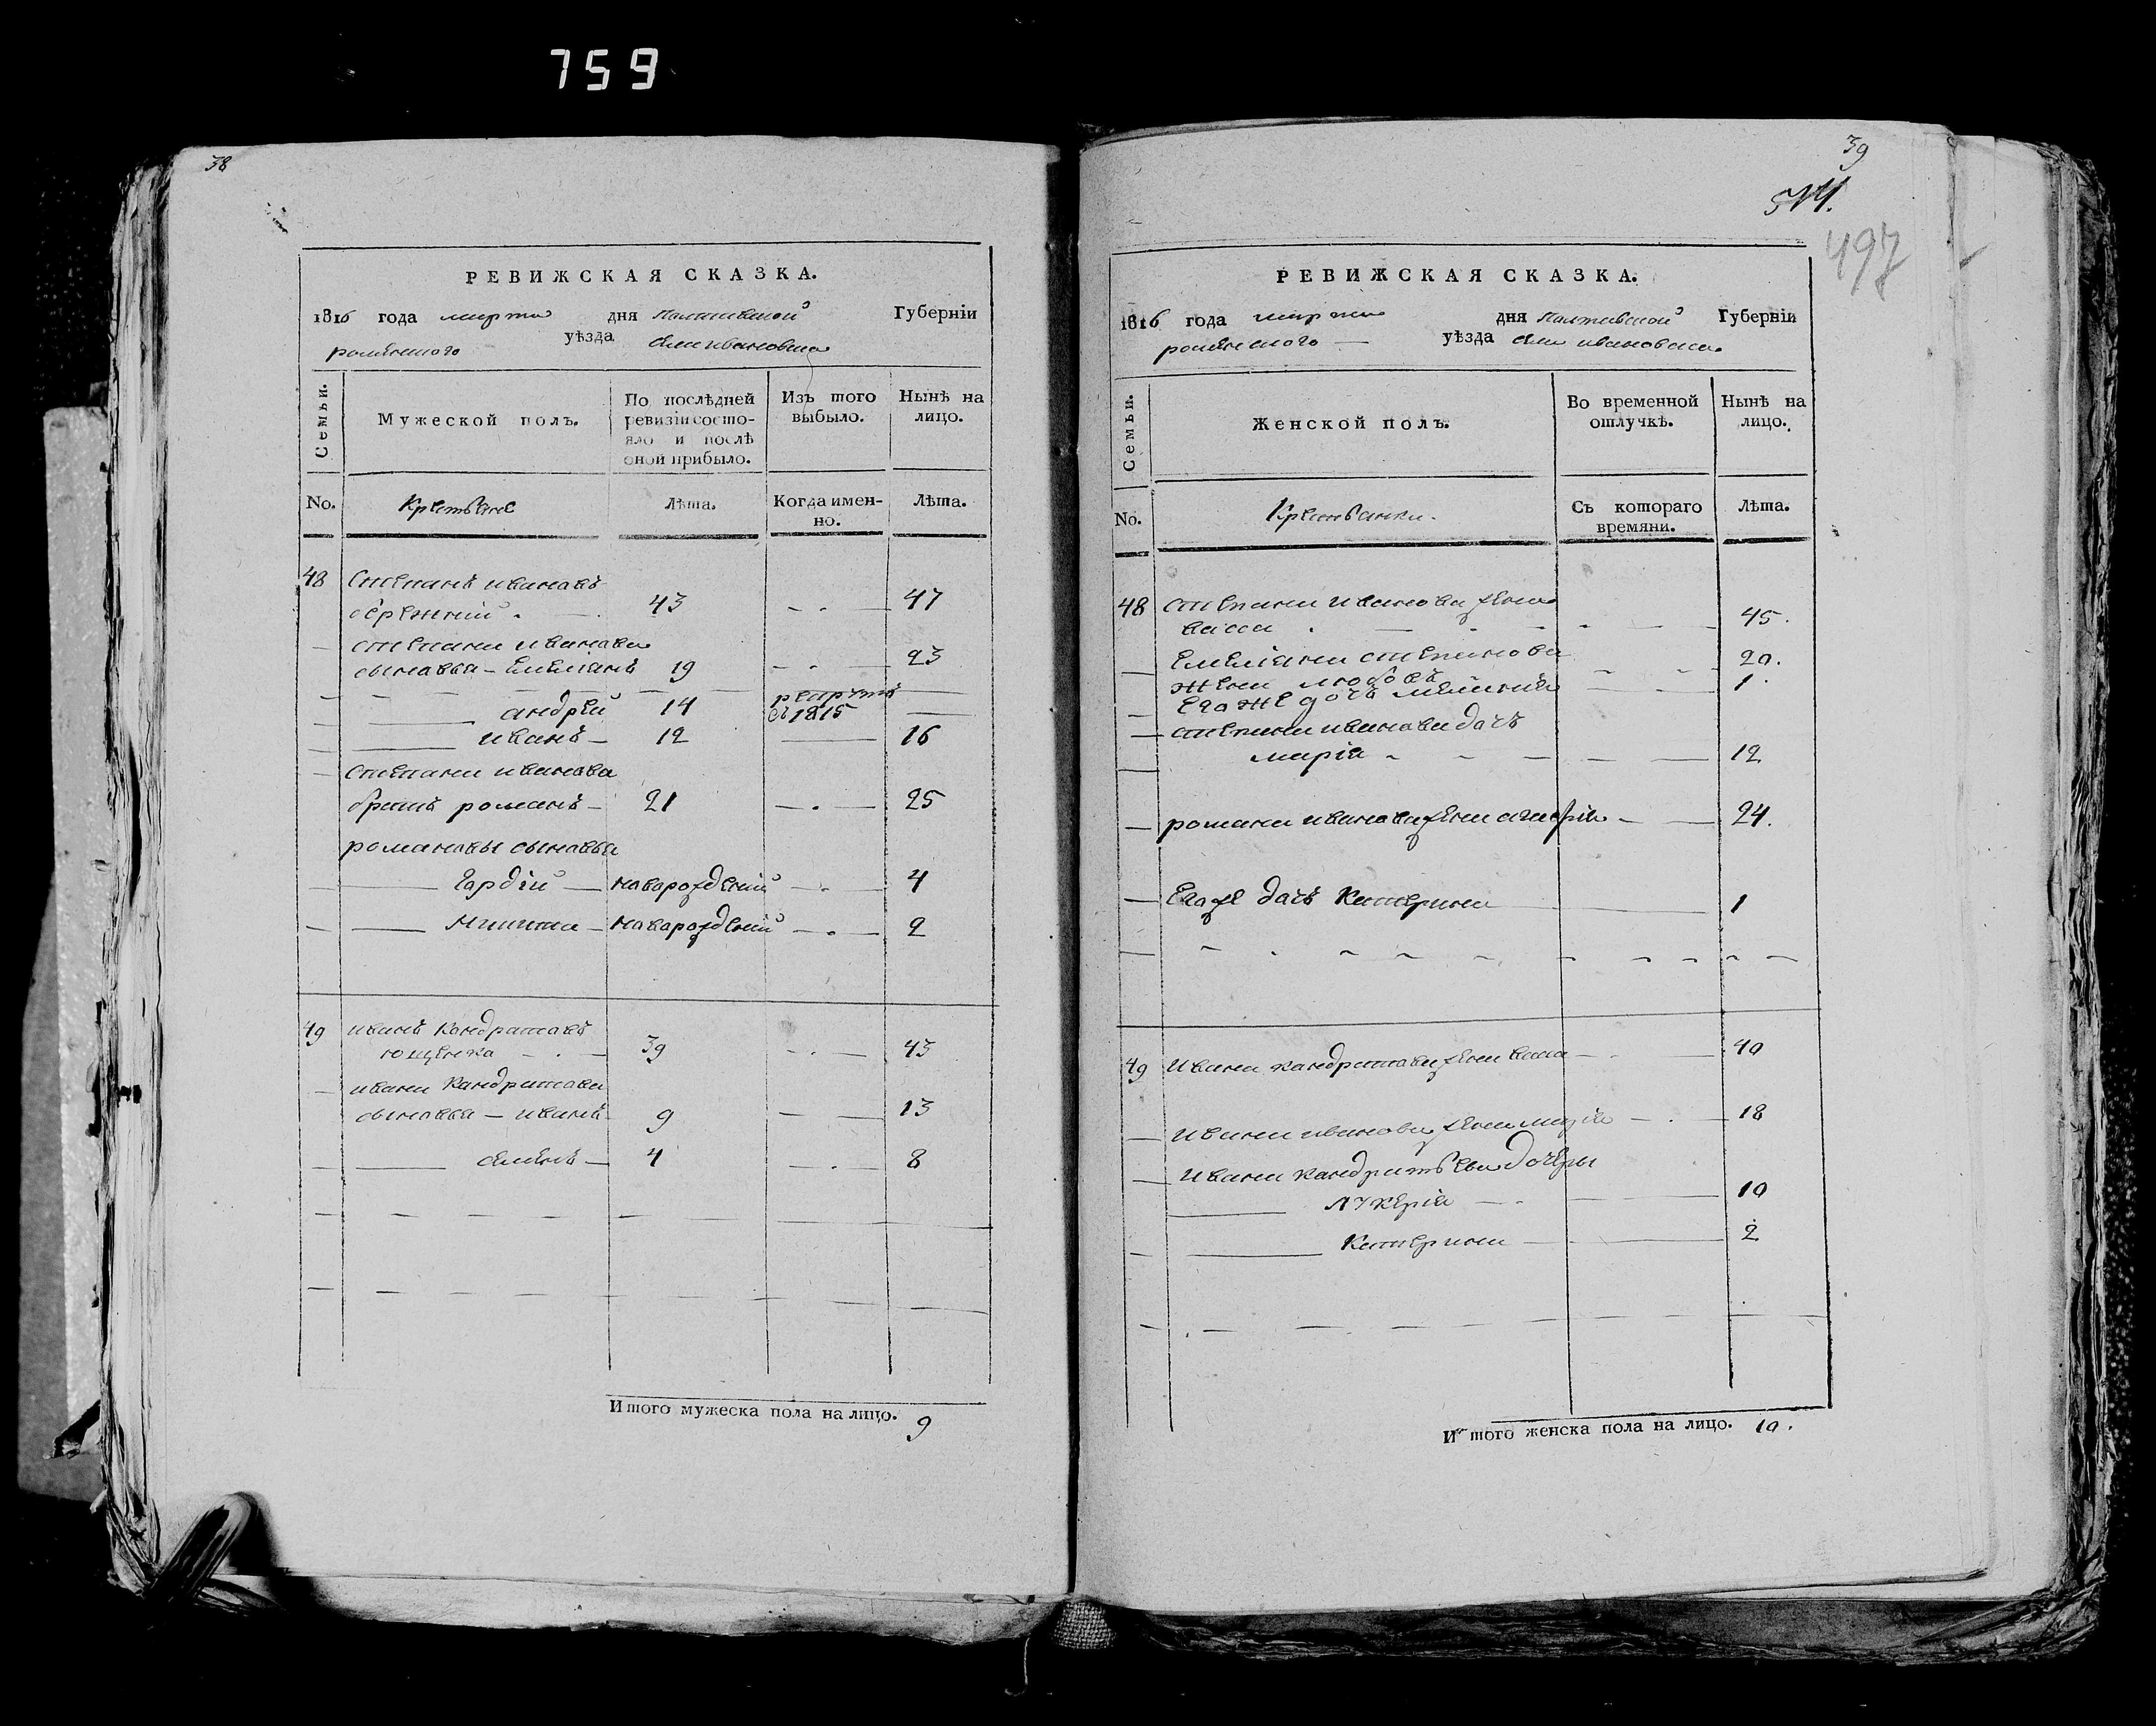 759
38
РЕВИЖСКАЯ СКАЗКА.
1816 года марта дня полтавской Губерніи
роменского уѣзда села ивановка
Семьи.
Мужеской полъ.
По послѣдней ревизіи состояло и послѣ оной прибыло.
Изъ того выбыло.
Нынѣ на лицо.
No.
Крестьяне
Лѣта.
Когда именно.
Лѣта.
48 Степанъ ивановъ
бережний 43 47
степана иванова
сыновья - Емеліанъ 19 23
андрей 14 рекрутъ
съ 1815
иванъ 12 16
степана иванова
братъ романъ 21 25
романовы сыновья
Гардій новорожденій 4
Микита новорожденій 2
49 иванъ кандратовъ
ющенка 39 43
ивана кандратова
сыновья - иванъ 9 13
семенъ 4 8
Итого мужеска пола на лицо. 9
39
514.
497
РЕВИЖСКАЯ СКАЗКА.
1816 года марта дня полтавской Губерніи
роменского уѣзда села ивановка.
Семьи.
Женской полъ.
Во временной отлучкѣ.
Нынѣ на лицо.
No.
Крестьянки.
Съ котораго времяни.
Лѣта.
48 степана иванова жена
васса 45.
Емеліана степанова 20.
жена любовъ
Егоже дочь 1
степана иванова дочь
марія 12
романа иванова жена 24.
Егоже дочь Катерина 1
49 ивана кандратова жена 40
ивана иванова жена 18
ивана кандратьева дочеры
лукерія 10
Катерина 2
Итого женска пола на лицо. 10.